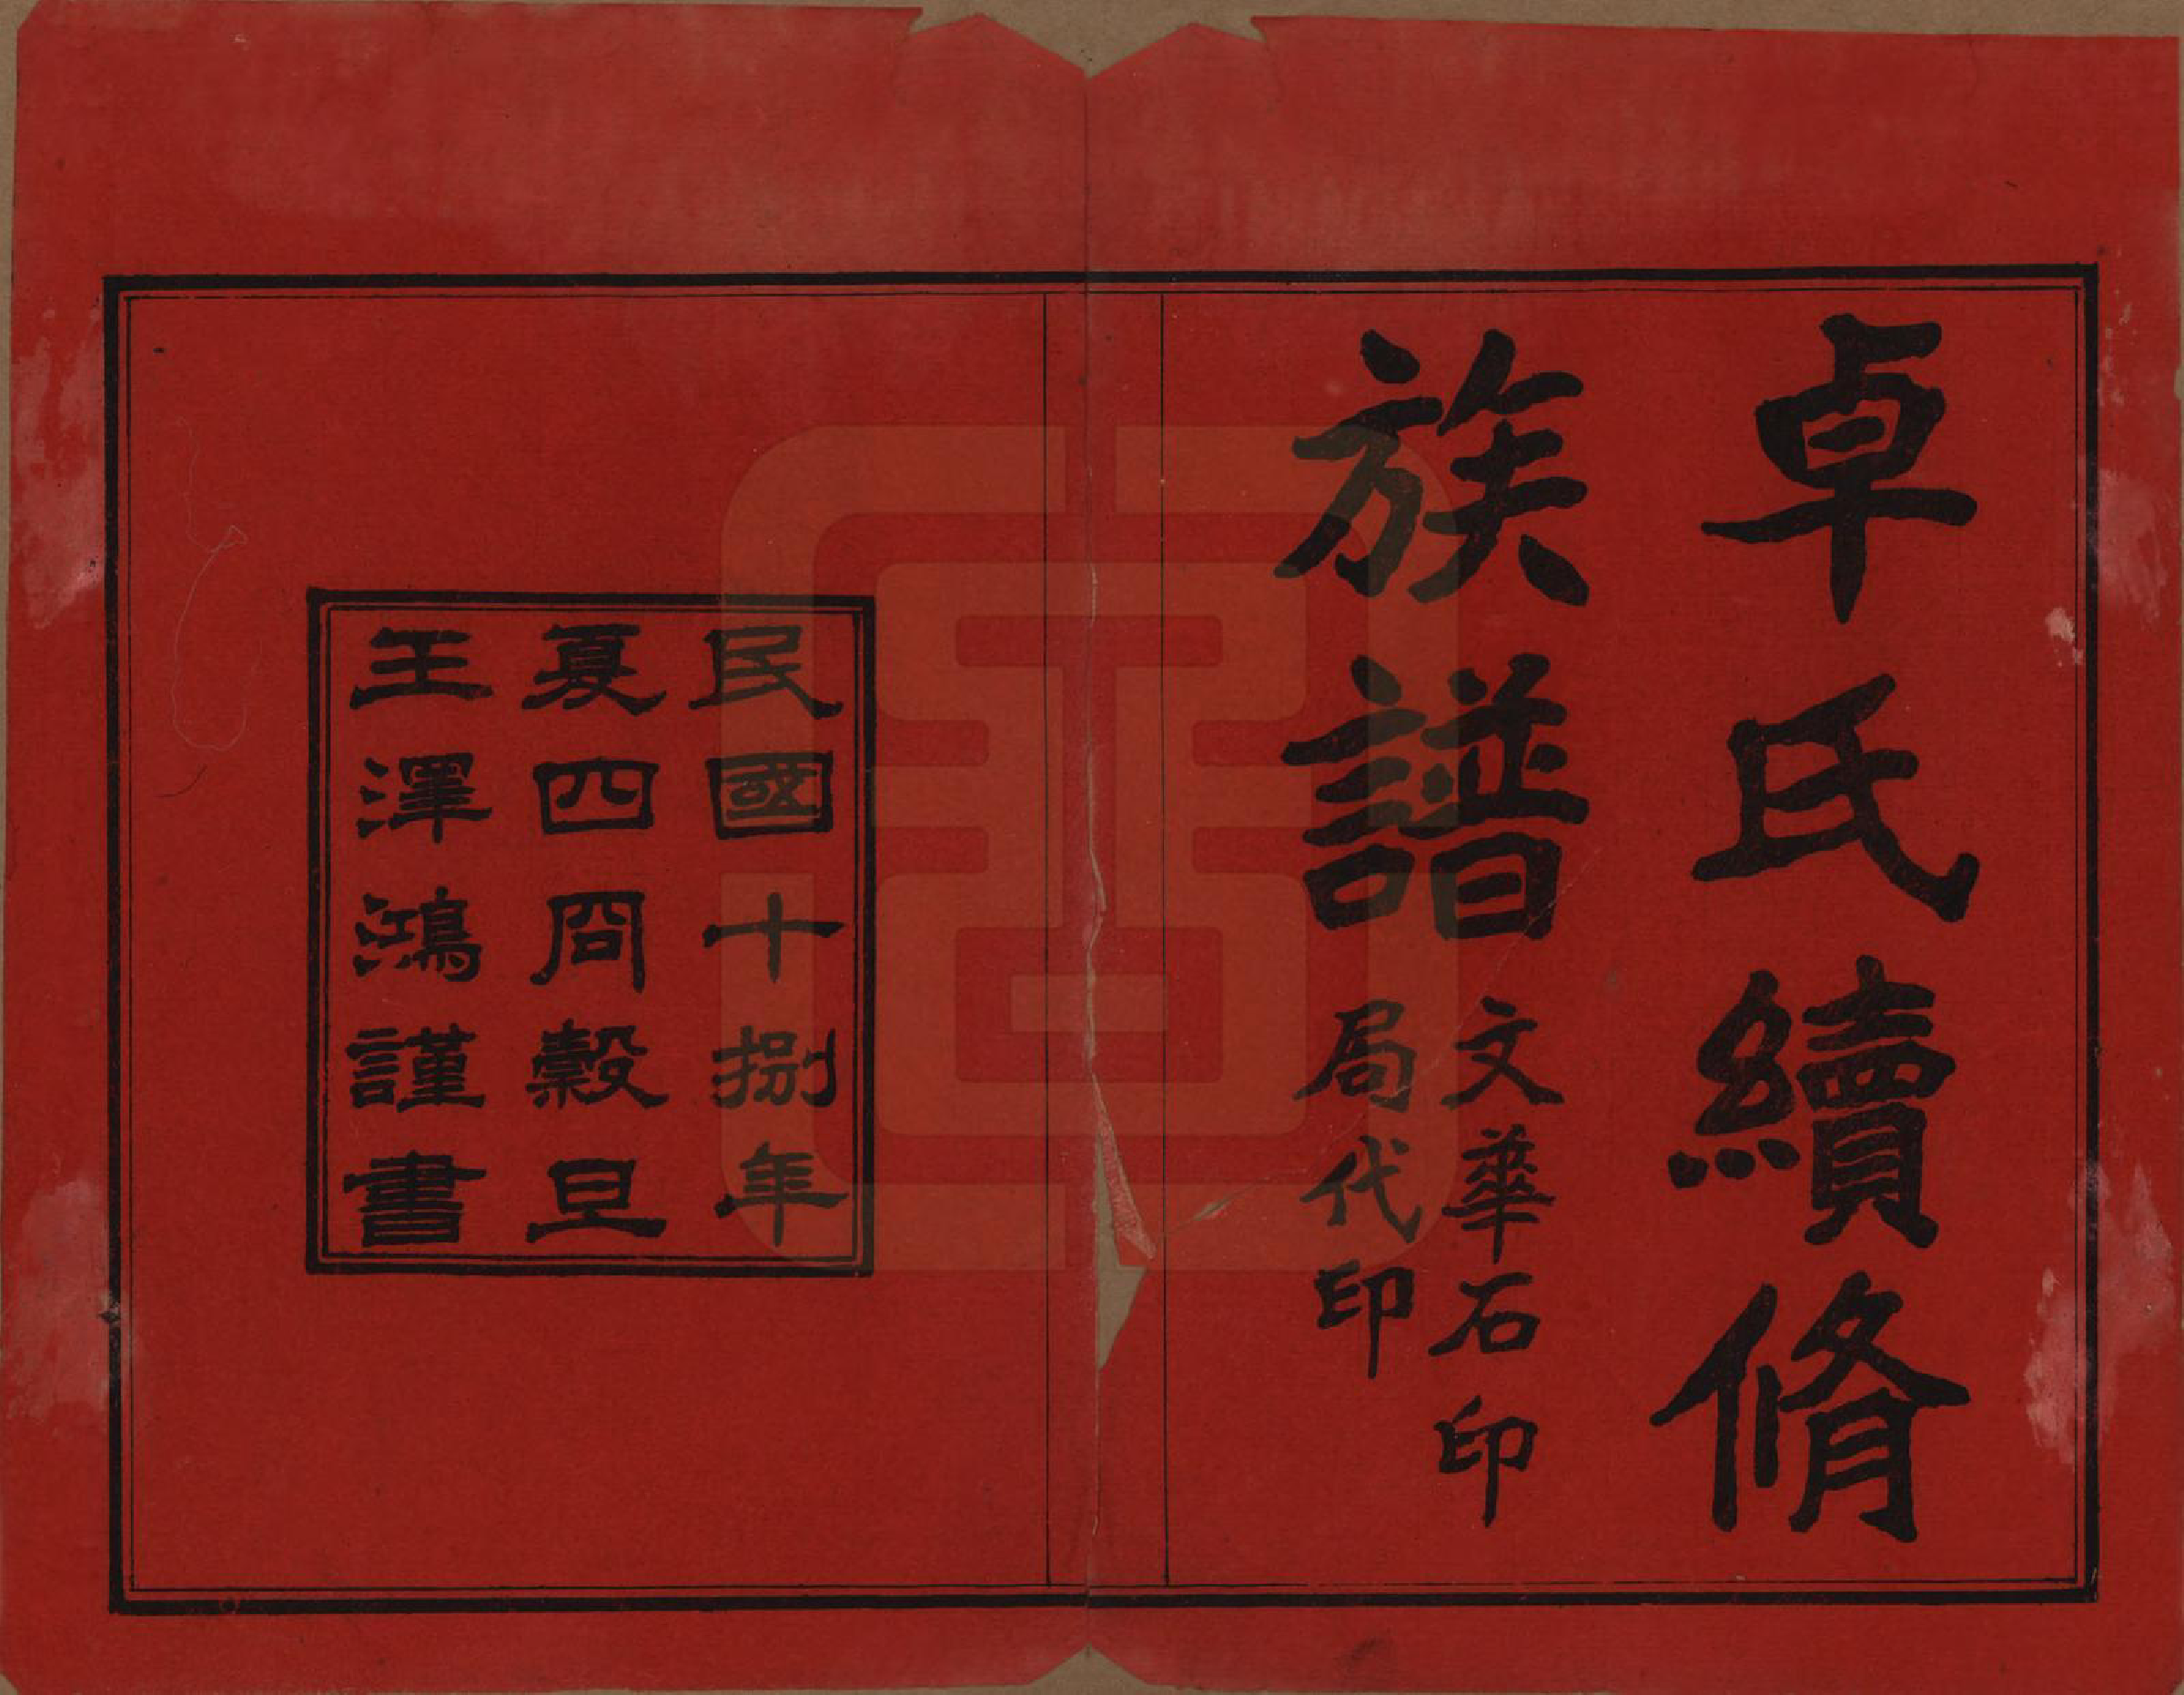 卓氏續脩
族譜
文華石印
局代印
民國十捌年
夏四月穀旦
王澤鴻謹書